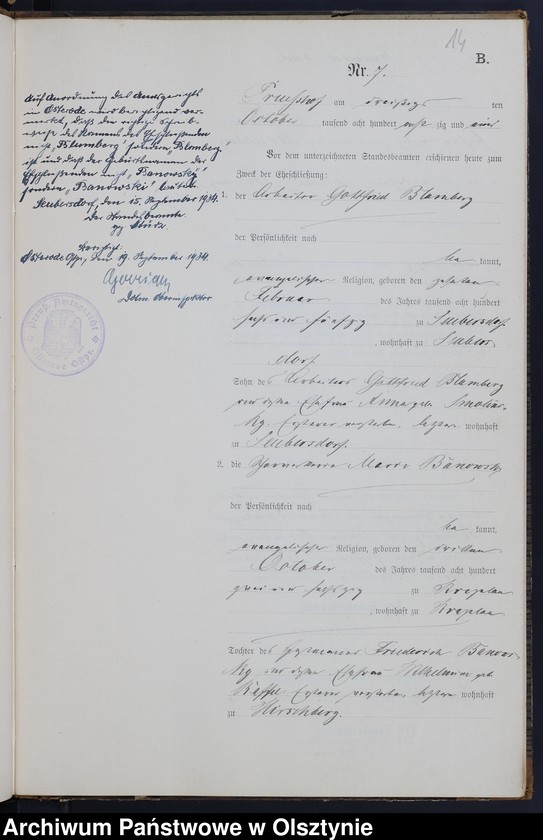 14
B.
Nr. 7.
Preußhof am dreißigsten
October tausend acht hundert acht zig und eins
Vor dem unterzeichneten Standesbeamten erschienen heute zum
Zweck der Eheschließung:
1. der Arbeiter Gottfried Blamberg
der Persönlichkeit nach
be kannt,
evangelischer Religion, geboren den
Februar des Jahres tausend acht hundert
sechs und fünfzig zu Seubersdorf
, wohnhaft zu Seubers
dorf
Sohn des Arbeiters Gottfried Blamberg
und dessen Ehefrau Anna geb.
Ersterer verstorben, letztere wohnhaft
zu Seubersdorf.
2. die Marie Banowsky
der Persönlichkeit nach
be kannt,
evangelischer Religion, geboren den dritten
October des Jahres tausend acht hundert
zwei und sechszig zu
, wohnhaft zu
Tochter des Friederich Banows
ky und dessen Ehefrau Wilhelmine geb.
Ersterer verstorben, letztere wohnhaft
zu Hirschberg.
Auf Anordnung des Amtsgerichts
in Osterode wird berichtigend ver-
merkt, daß die richtige Schreib-
weise des Namens des Eheschließenden
nicht „Blumberg" sondern „Blamberg"
ist und daß der Geburtsname der
Ehefrau nicht „Banowsky"
sondern „Banowski" lautet.
Seubersdorf, den 15. September 1934.
Der Standesbeamte
gez.
Osterode Ostpr., den 19. September 1934.
Preuß. Amtsgericht
Osterode Ostpr.
Archiwum Państwowe w Olsztynie